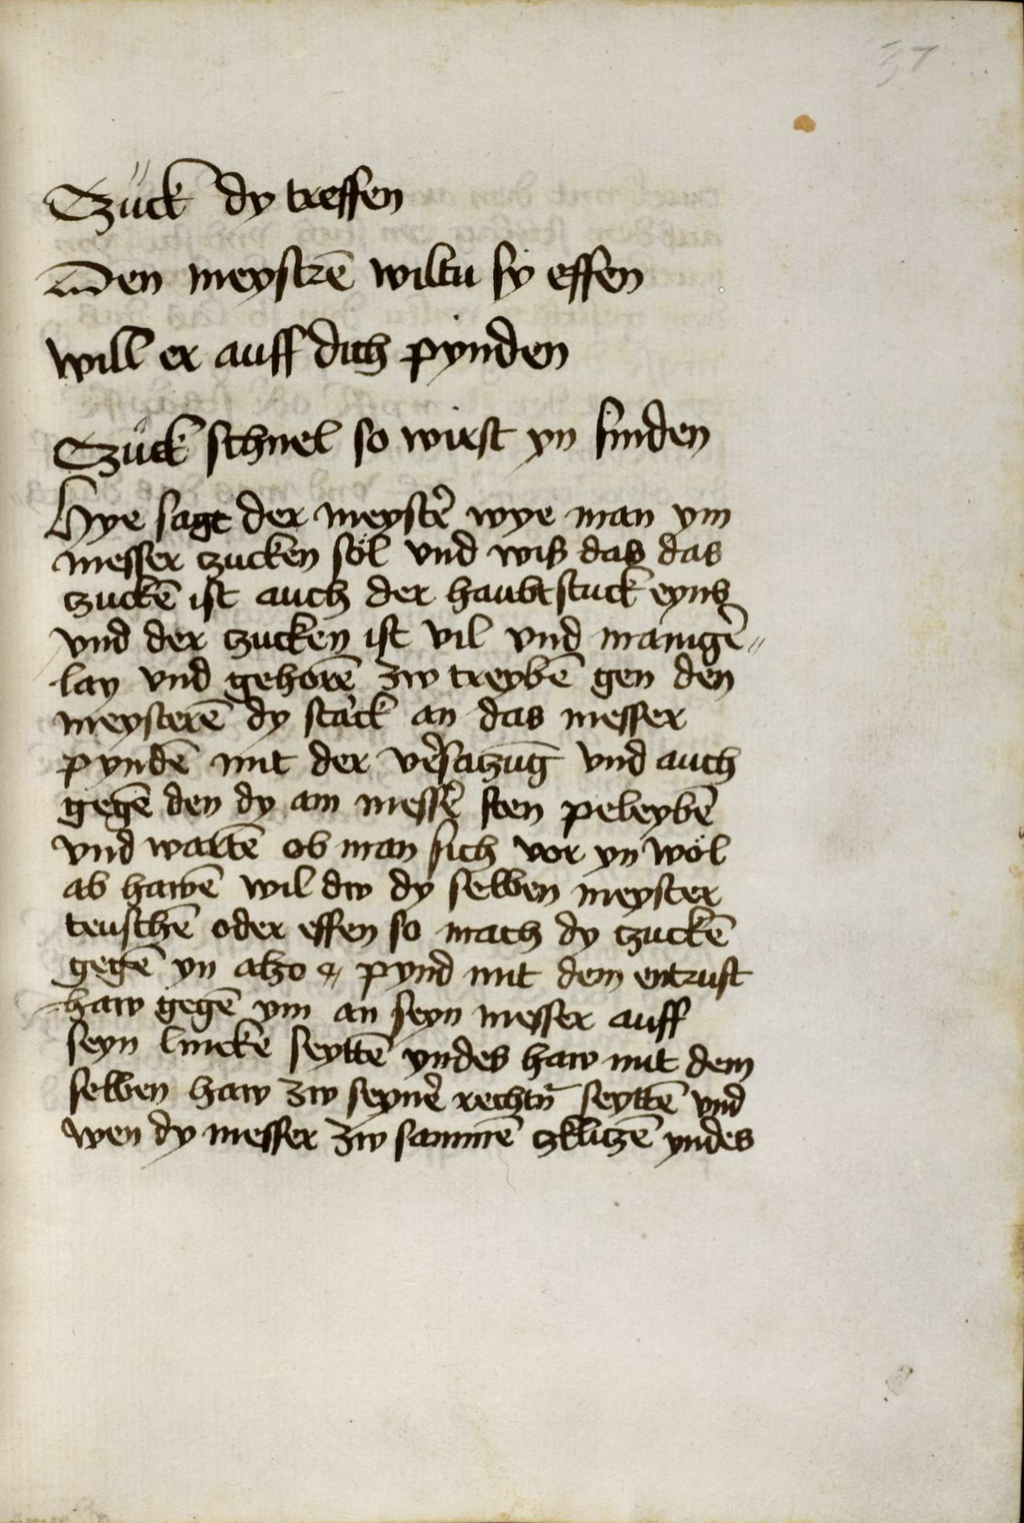 37
Czück dy treffen
Den meystrē wiltu sy effen
will er auff dich pynden
Czuck schnel so wirst yn finden
Hye sagt der meystẽ wye man ym
messer zucken söl vnd wiß das das
zuckē ist auch der haubtstuck eyns
vnd der zucken ist vil vnd manigẽ„
lay vnd gehorē zw treybē gen den
meysterē dy starck an das messer
pyndē mit der vẽsatzūg vnd auch
gegē den dy am messẽ sten peleybē
vnd wartē ob man sich vor yn wöl
ab hawē wil dw dy selben meyster
teuschē oder effen so mach dy zuckē
gegē yn alzo pynd mit dem entrust
haw gegē ym an seyn messer auff
seyn linckē seyttē yndes haw mit dem
selben haw zw seynẽ rechtn̄ seyttē vnd
wen dy messer zw sammē czklitzē yndes